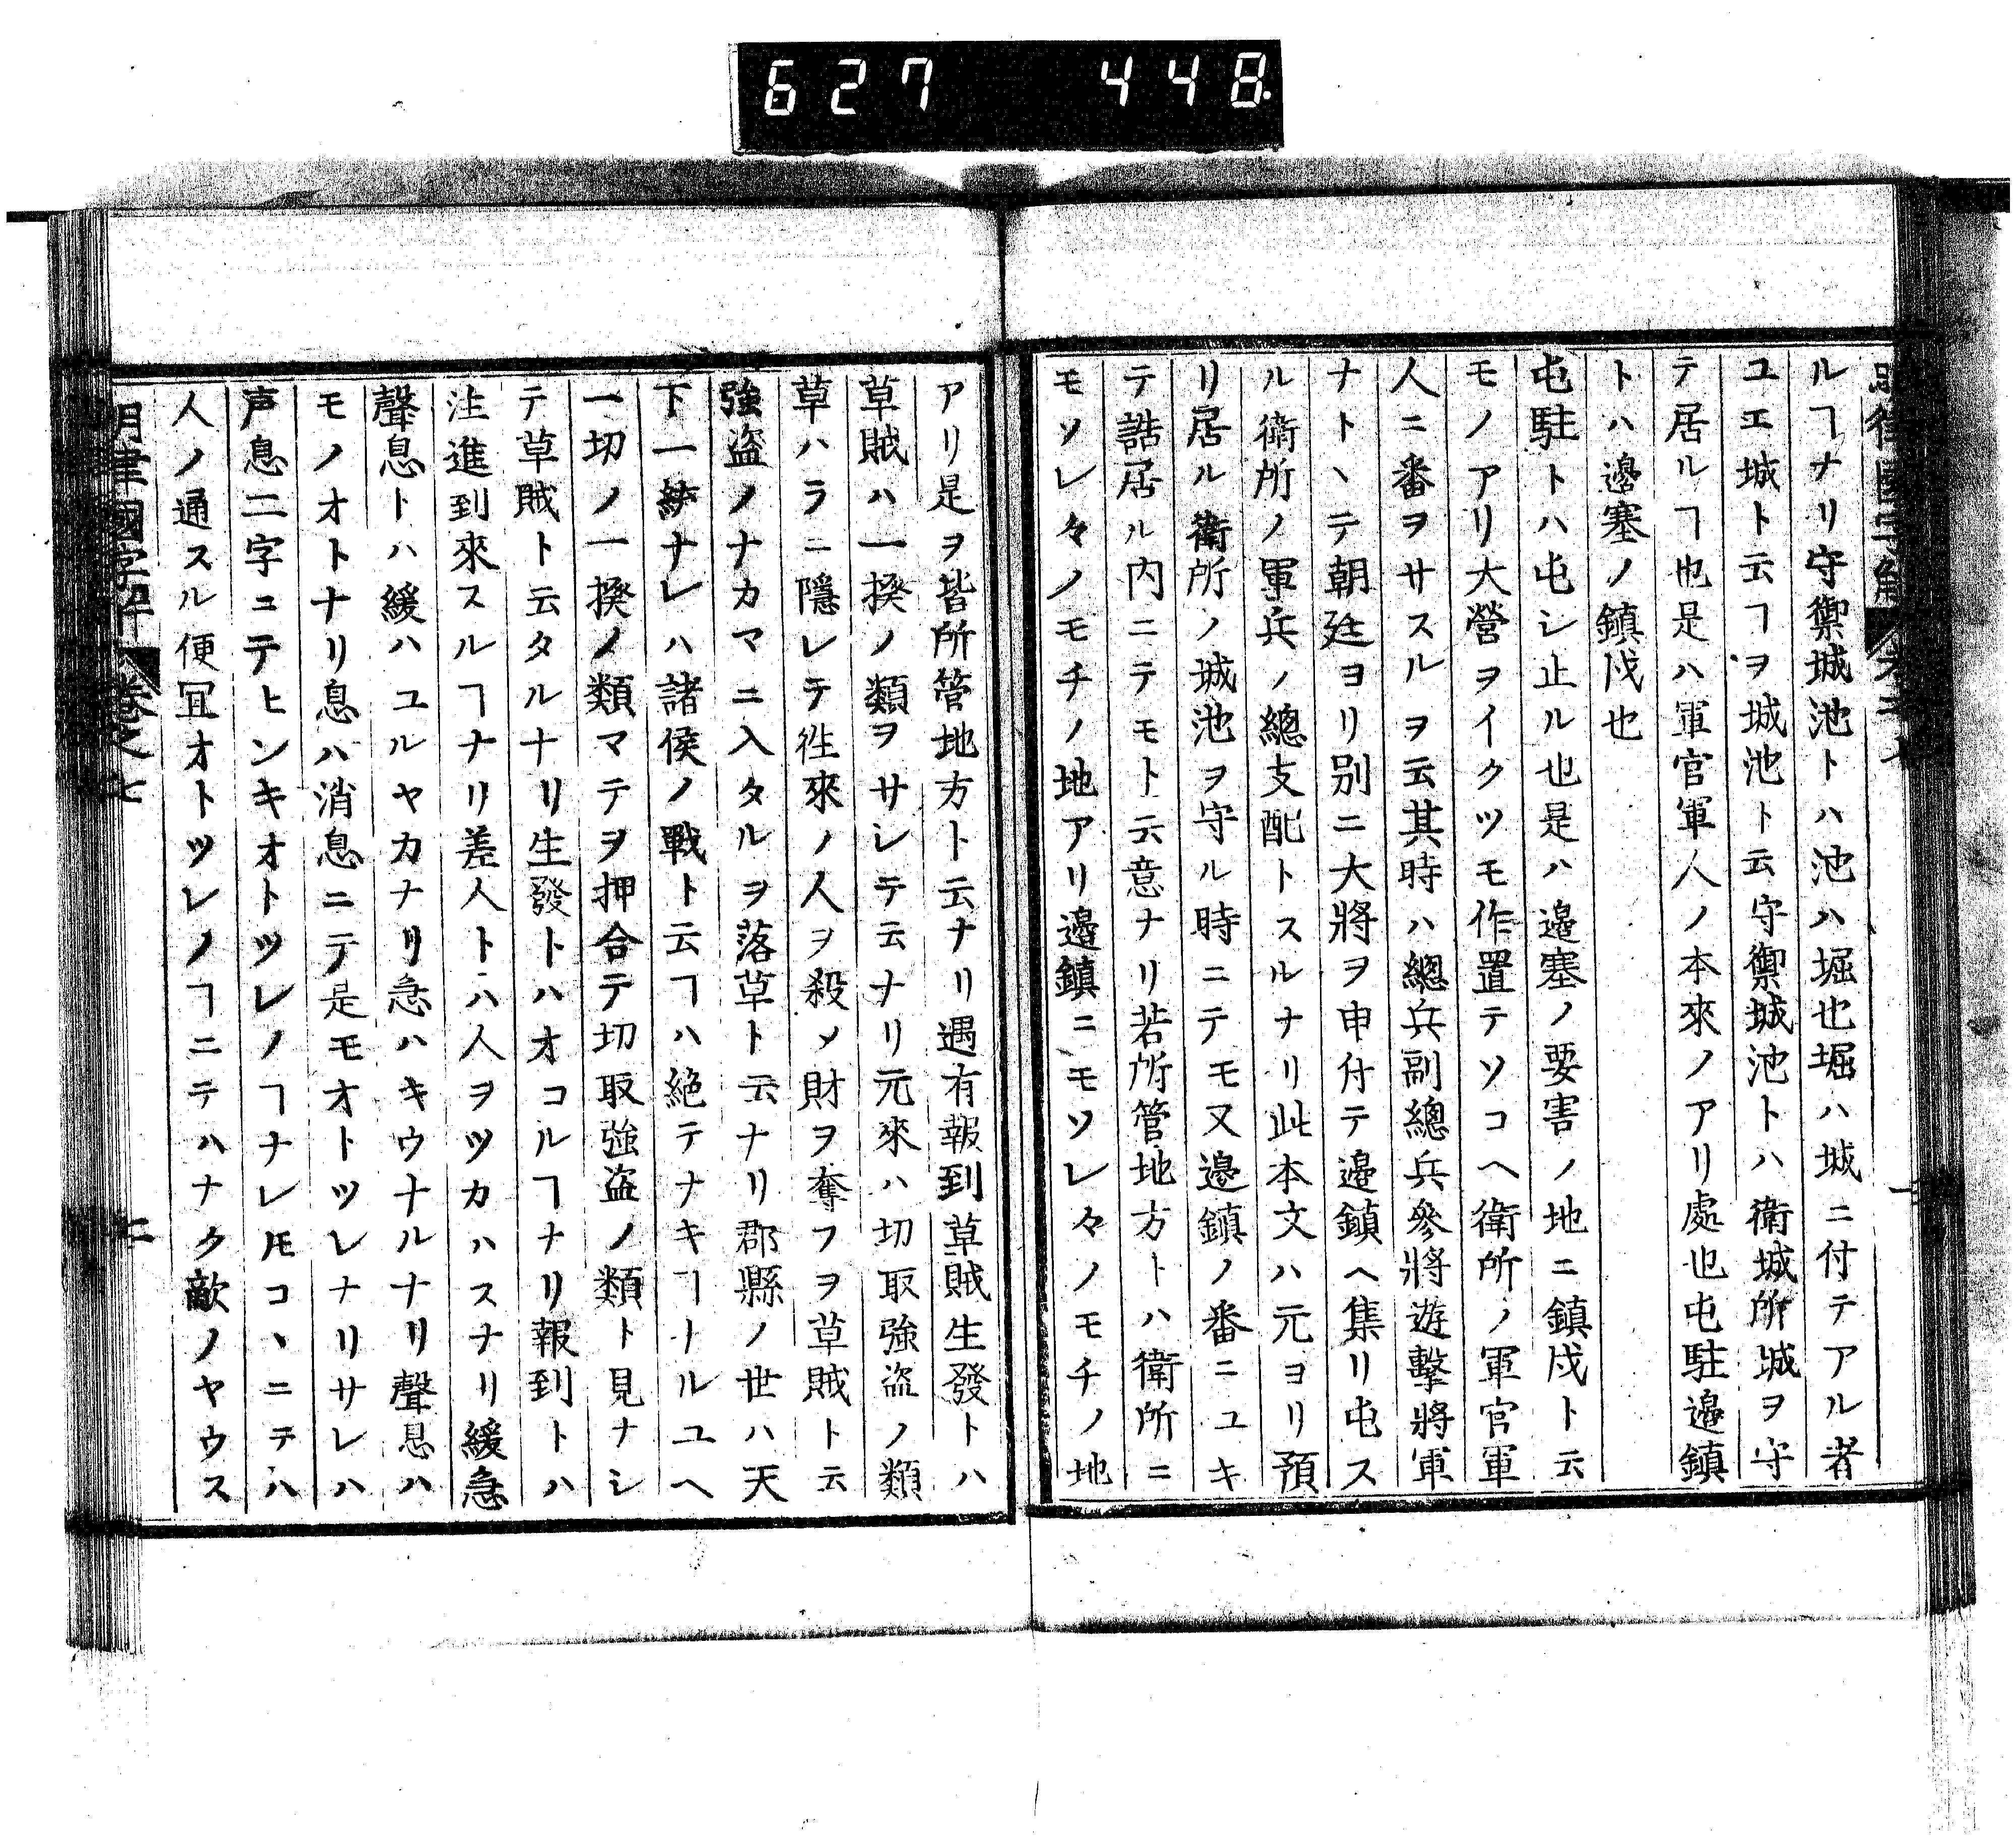 627 448
ルヿナリ守禦城池トハ池ハ堀也堀ハ城ニ付テアル者
ユエ城ト云ヿヲ城池ト云守禦城池トハ衛城所城ヲ守
テ居ルヿ也是ハ軍官軍人ノ本來ノアリ處也屯駐邉鎮
トハ邉塞ノ鎮戍也
屯駐トハ屯シ止ル也是ハ邉塞ノ要害ノ地ニ鎮戍ト云
モノアリ大營ヲイクツモ作置テソコヘ衛所ノ軍官軍
人ニ番ヲサスルヲ云其時ハ總兵副總兵參將遊擊將軍
ナトヽテ朝廷ヨリ別ニ大將ヲ申付テ邉鎮ヘ集リ屯ス
ル衛所ノ軍兵ノ總支配トスルナリ此本文ハ元ヨリ預
リ居ル衛所ノ城池ヲ守ル時ニテモ又邉鎮ノ番ニユキ
テ詰居ル内ニテモト云意ナリ若所管地方トハ衛所ニ
モソレ々ノモチノ地アリ邉鎮ニモソレ々ノモチノ地
アリ是ヲ皆所管地方ト云ナリ遇有報到草賊生發トハ
草賊ハ一揆ノ類ヲサシテ云ナリ元來ハ切取強盗ノ類
草ハラニ隱レテ徃來ノ人ヲ殺メ財ヲ奪フヲ草賊ト云
強盗ノナカマニ入タルヲ落草ト云ナリ郡縣ノ世ハ天
下一統ナレハ諸侯ノ戰ト云ヿハ絶テナキヿナルユヘ
一切ノ一揆ノ類マテヲ押合テ切取強盗ノ類ト見ナシ
テ草賊ト云タルナリ生發トハオコルヿナリ報到トハ
注進到來スルヿナリ差人トハ人ヲツカハスナリ緩急
聲息トハ緩ハユルヤカナリ急ハキウナルナリ聲息ハ
モノオトナリ息ハ消息ニテ是モオトツレナリサレハ
声息二字ニテヒンキオトツレノヿナレ𪜈コヽニテハ
人ノ通スル便冝オトツレノヿニテハナク敵ノヤウス
明律國字解 卷之七 二